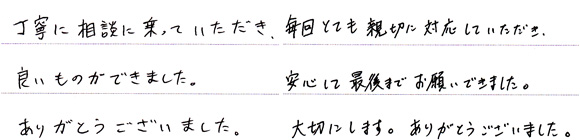 丁寧に相談に乗っていただき、毎回とても親切に対応していただき、
良いものができました。 安心して最後までお願いできました。
ありがとうございました。 大切にします。ありがとうございました。